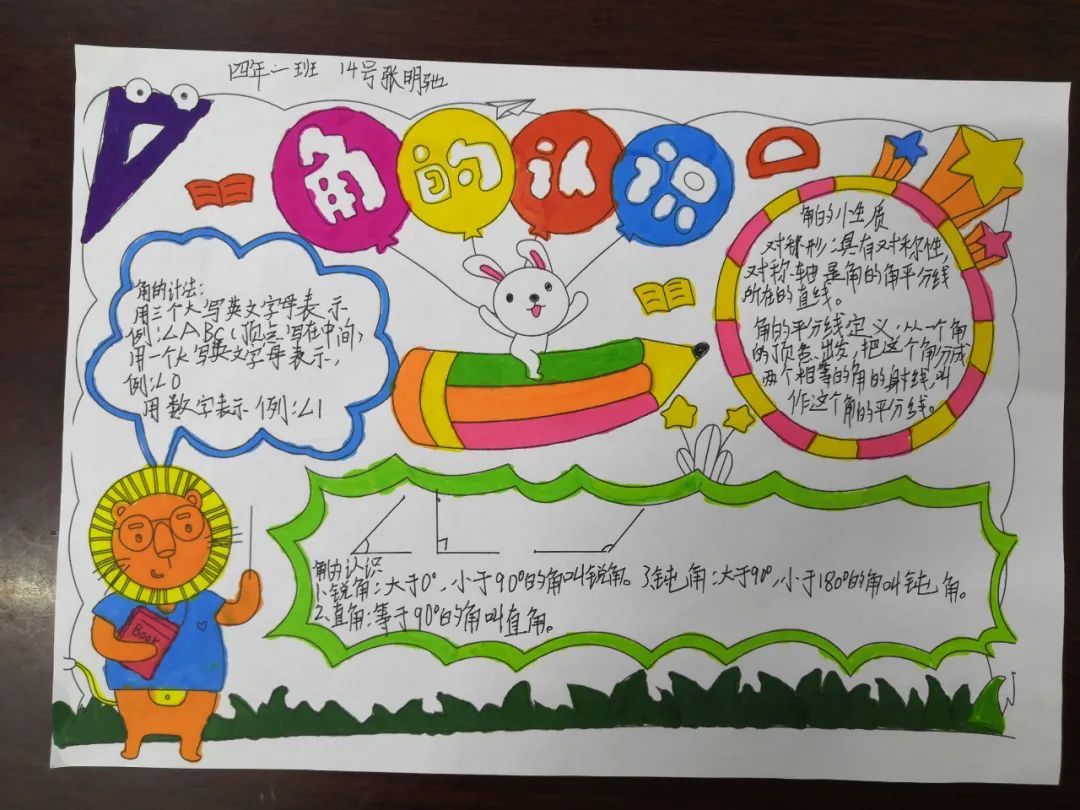 四年一班 14号张明弛
角的认识
角的计法:
用三个大写英文字母表示
例:∠ABC(顶点写在中间,
用一个大写英文字母表示,
例:∠O
用数字表示 例:∠1
角的小性质
对称形:具有对称性,
对称轴是角的角平分线
所在的直线。
角的平分线定义:从一个角
的顶点出发,把这个角分成
两个相等的角的射线,叫
作这个角的平分线。
Book
角的认识
1.锐角:大于0°,小于90°的角叫锐角。3钝角:大于90°,小于180°的角叫钝角。
2.直角:等于90°的角叫直角。